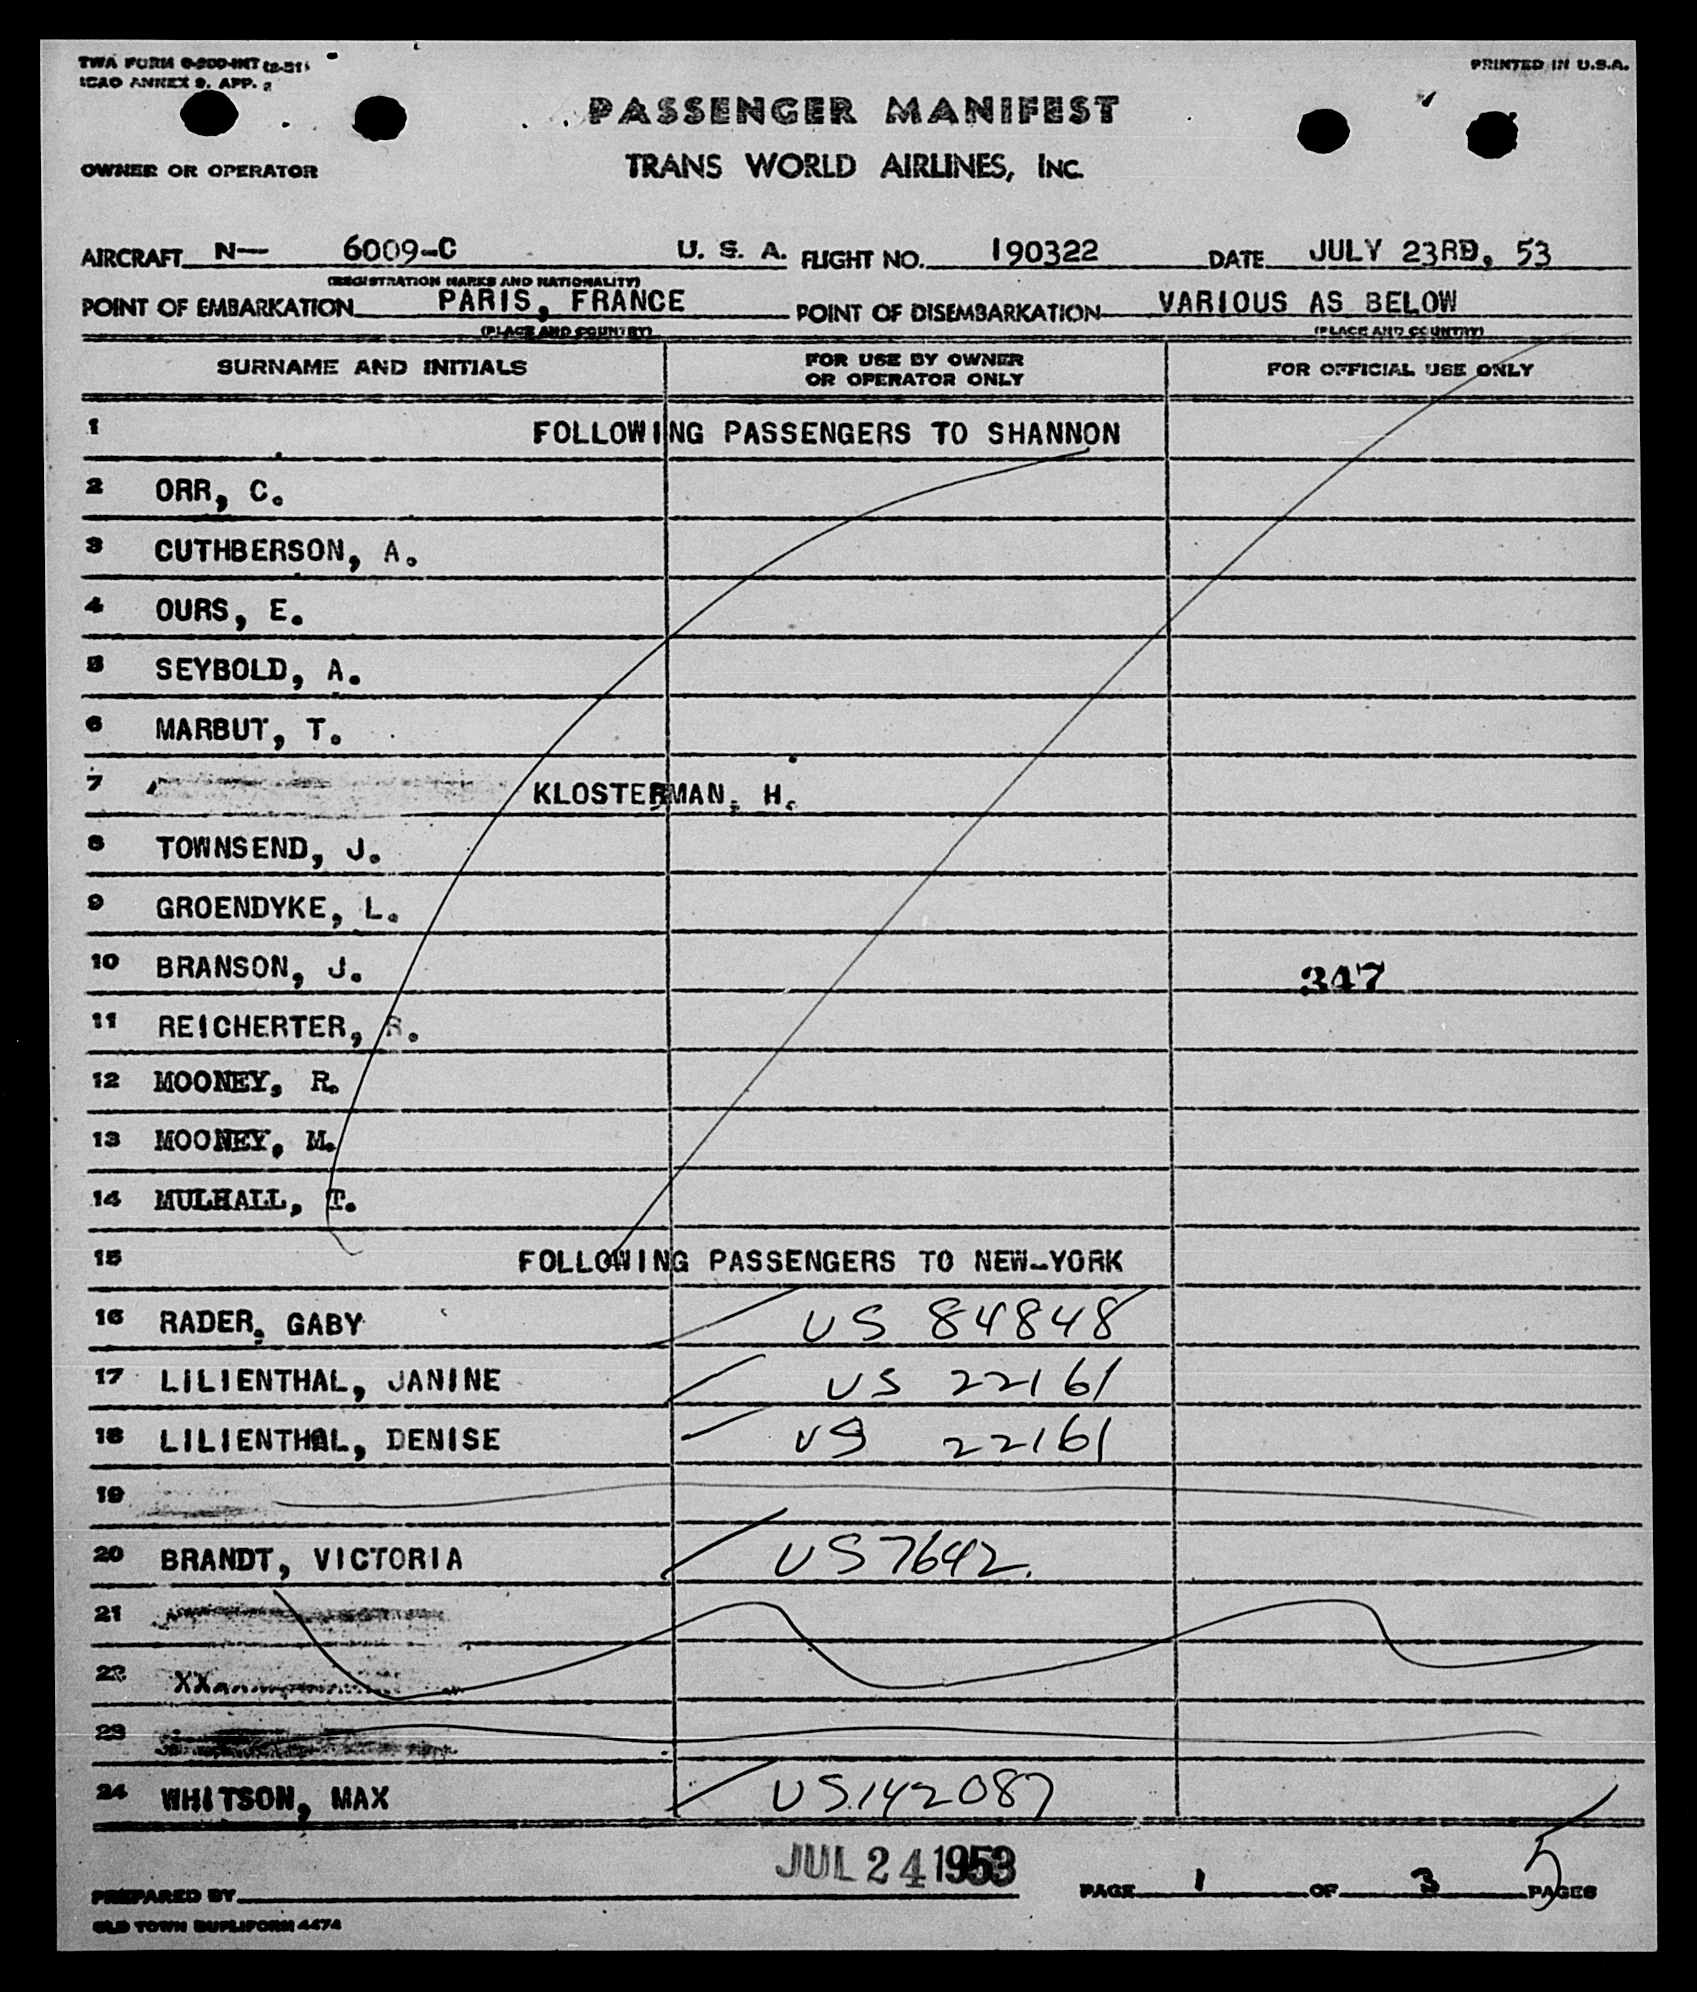 TWA FORM 0-900-INT (2-51)
ICAO ANNEX 9. APP. 2
PRINTED IN U.S.A.
PASSENGER MANIFEST
OWNER OR OPERATOR
TRANS WORLD AIRLINES, INC.
AIRCRAFT N— 6009-C U. S. A. FLIGHT NO. 190322 DATE JULY 23RD, 53
(REGISTRATION MARKS AND NATIONALITY)
POINT OF EMBARKATION PARIS, FRANCE POINT OF DISEMBARKATION VARIOUS AS BELOW
(PLACE AND COUNTRY) (PLACE AND COUNTRY)
SURNAME AND INITIALS FOR USE BY OWNER OR OPERATOR ONLY FOR OFFICIAL USE ONLY
1 FOLLOWING PASSENGERS TO SHANNON
2 ORR, C.
3 CUTHBERSON, A.
4 OURS, E.
5 SEYBOLD, A.
6 MARBUT, T.
7 KLOSTERMAN, H.
8 TOWNSEND, J.
9 GROENDYKE, L.
10 BRANSON, J. 347
11 REICHERTER, R.
12 MOONEY, R.
13 MOONEY, M.
14 MULHALL, T.
15 FOLLOWING PASSENGERS TO NEW-YORK
16 RADER, GABY US 84848
17 LILIENTHAL, JANINE US 22161
18 LILIENTHAL, DENISE US 22161
19
20 BRANDT, VICTORIA US 7642.
21
22 XX
23
24 WHITSON, MAX US 142087
JUL 24 1953
PREPARED BY PAGE 1 OF 3 PAGES 5
OLD TOWN DUPLIFORM 4474